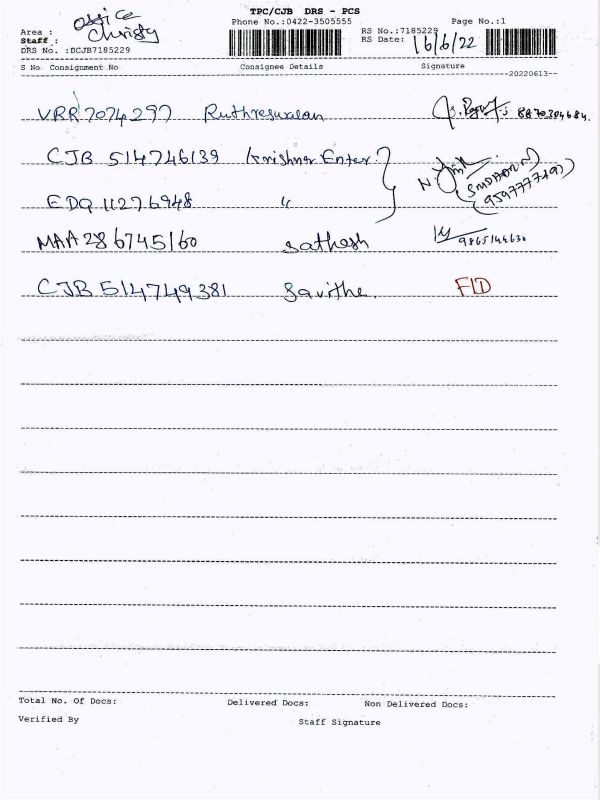 TPC/CJB DRS - PCS
Phone No.:0422-3505555 Page No.:1
Area : office
Staff : Christy
RS No.:7185229
RS Date: 16/6/22
DRS No. :DCJB7185229
S No Consignment No Consignee Details Signature
--20220613--
VRR 7074297 8870304684.
CJB 514746139 Krishna Enter.
EDQ 11276948 "
MAA 286745160 Sathesh 9865144630
CJB 514749381 Savitha. FID
Total No. Of Docs: Delivered Docs: Non Delivered Docs:
Verified By Staff Signature